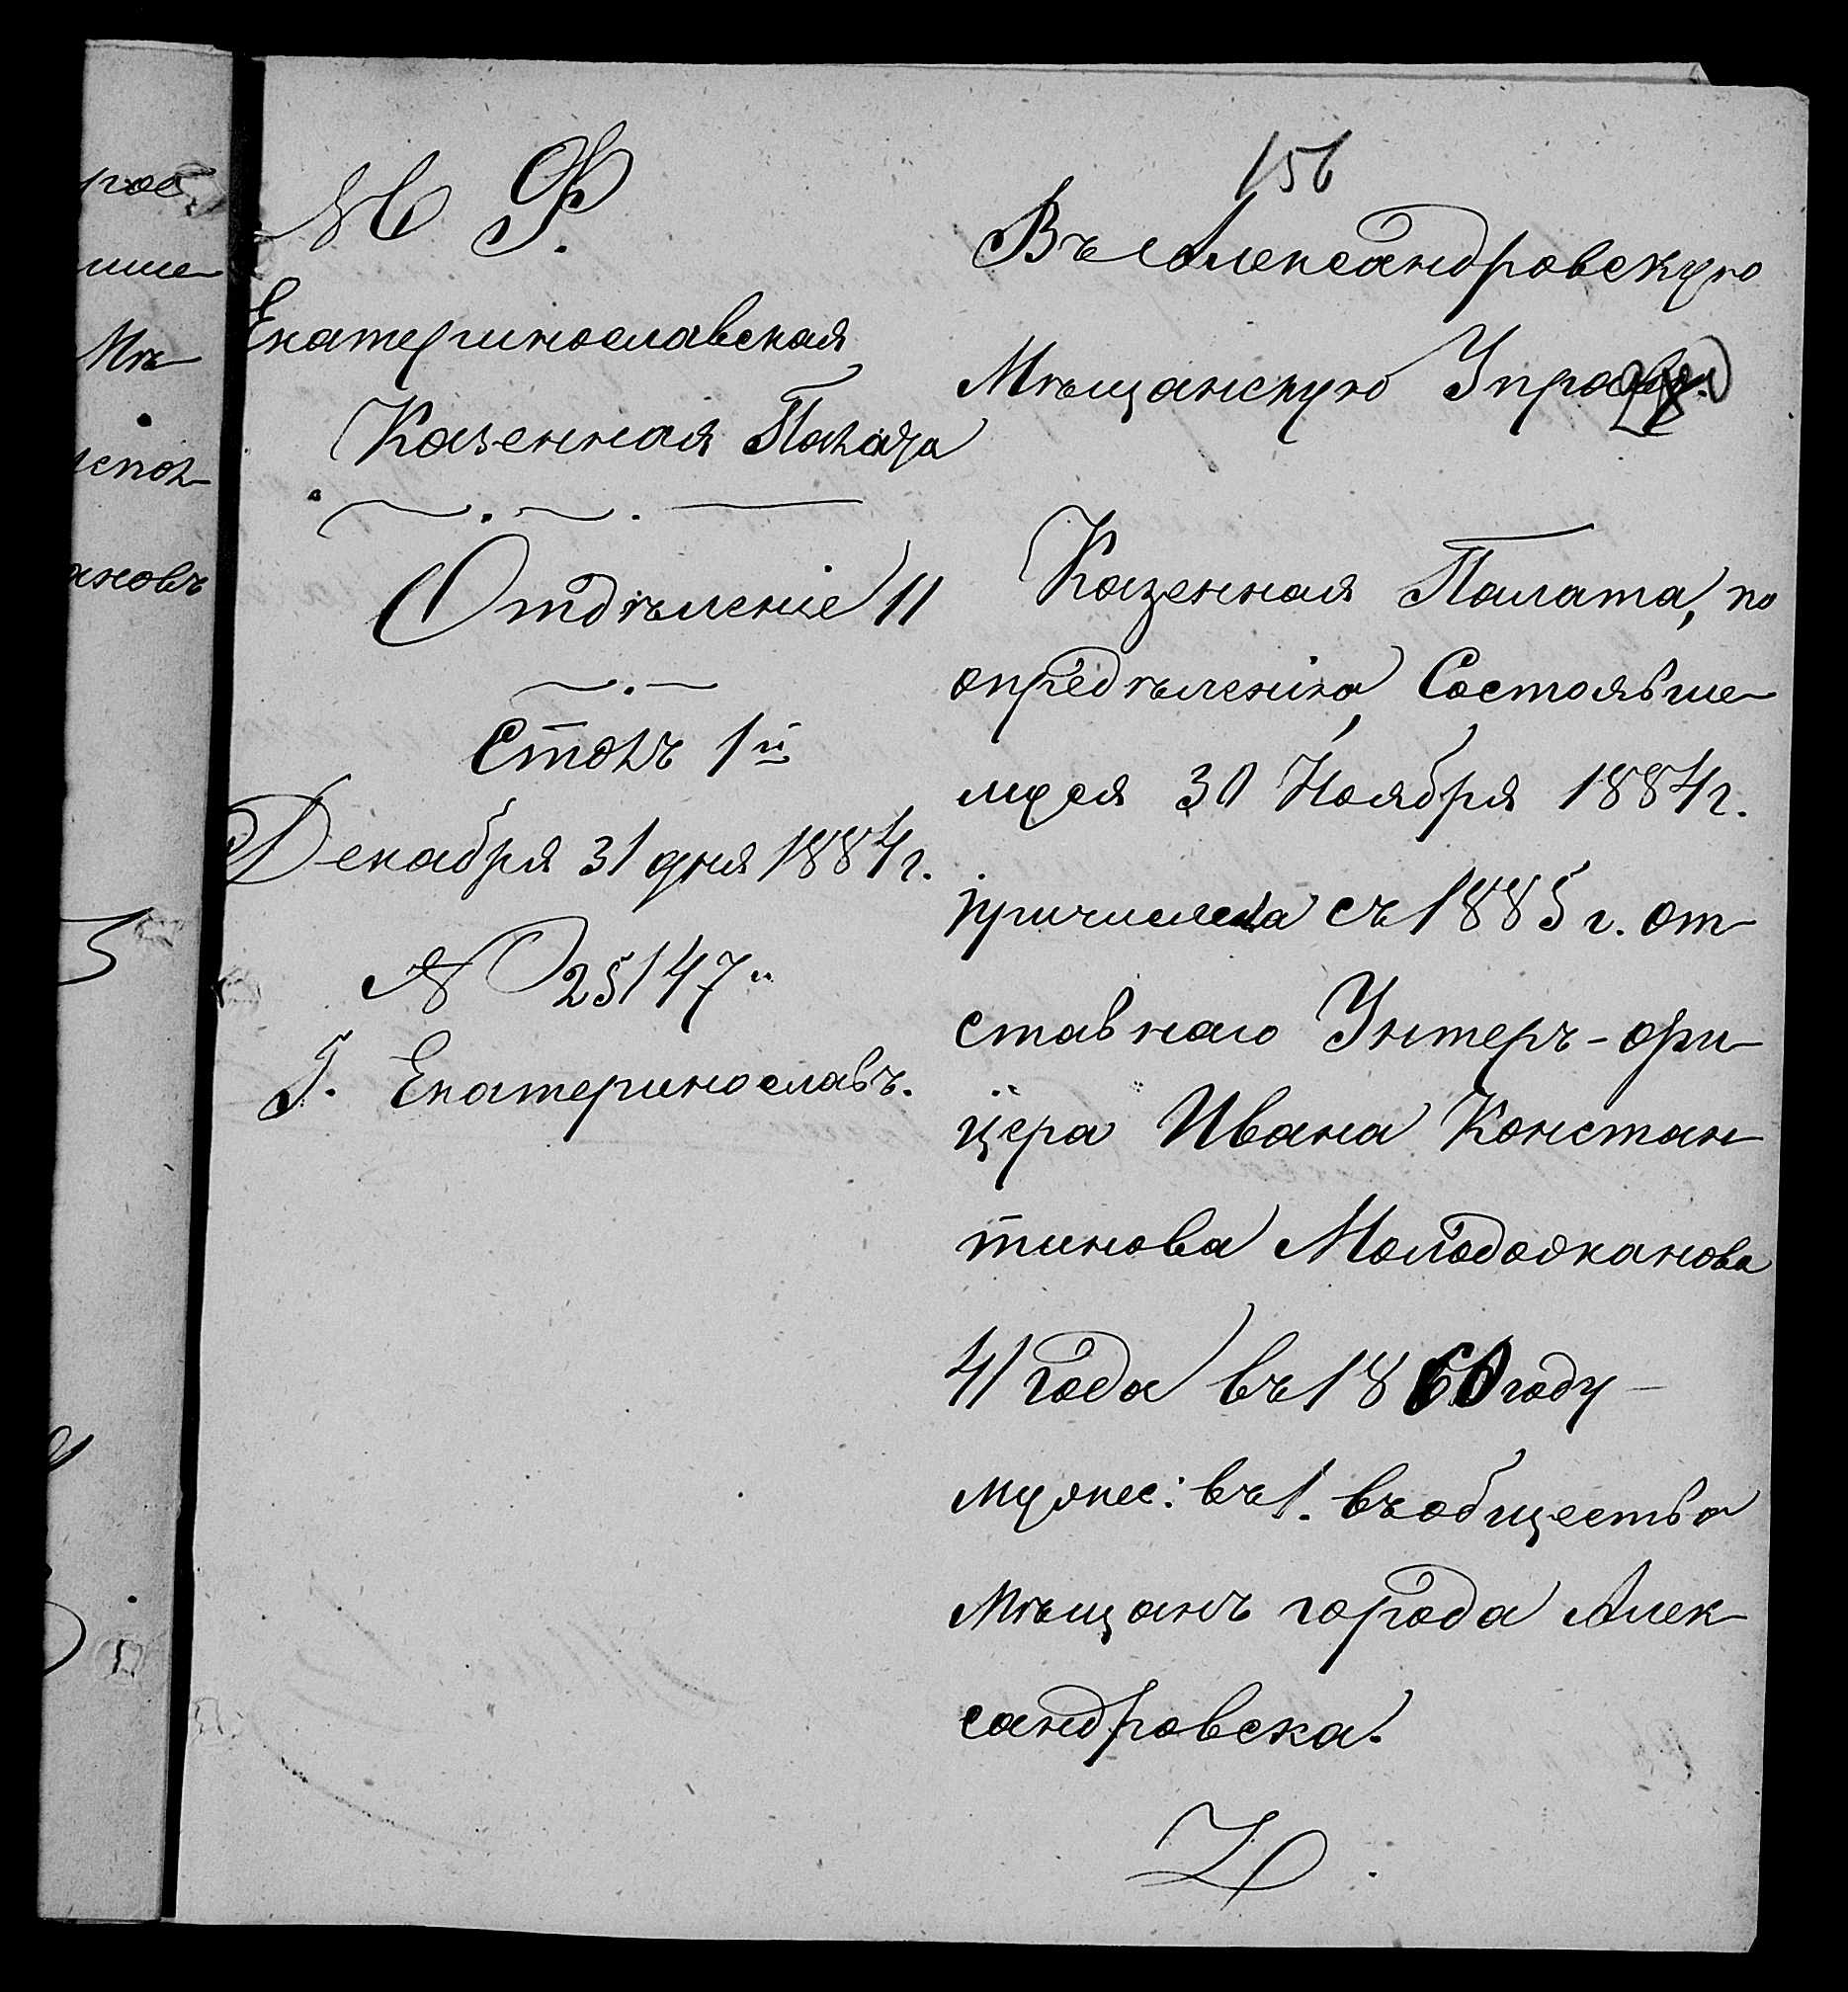 М Ф.
Екатеринославская
Казенная Палата
Отдѣленіе II
Столъ 1й
Декабря 31 дня 1884 г.
№ 25147
Г. Екатеринославъ.
156
Въ Александровскую
Мѣщанскую Управу.
Казенная Палата, по
опредѣленію, Состоявше
муся 30 Ноября 1884 г.
причислила съ 1885 г. от
ставнаго Унтеръ-офи
цера Ивана Констан
тинова
41 года въ 1860 году
мужес: въ 1. въ общество
мѣщанъ города Алек
сандровска.